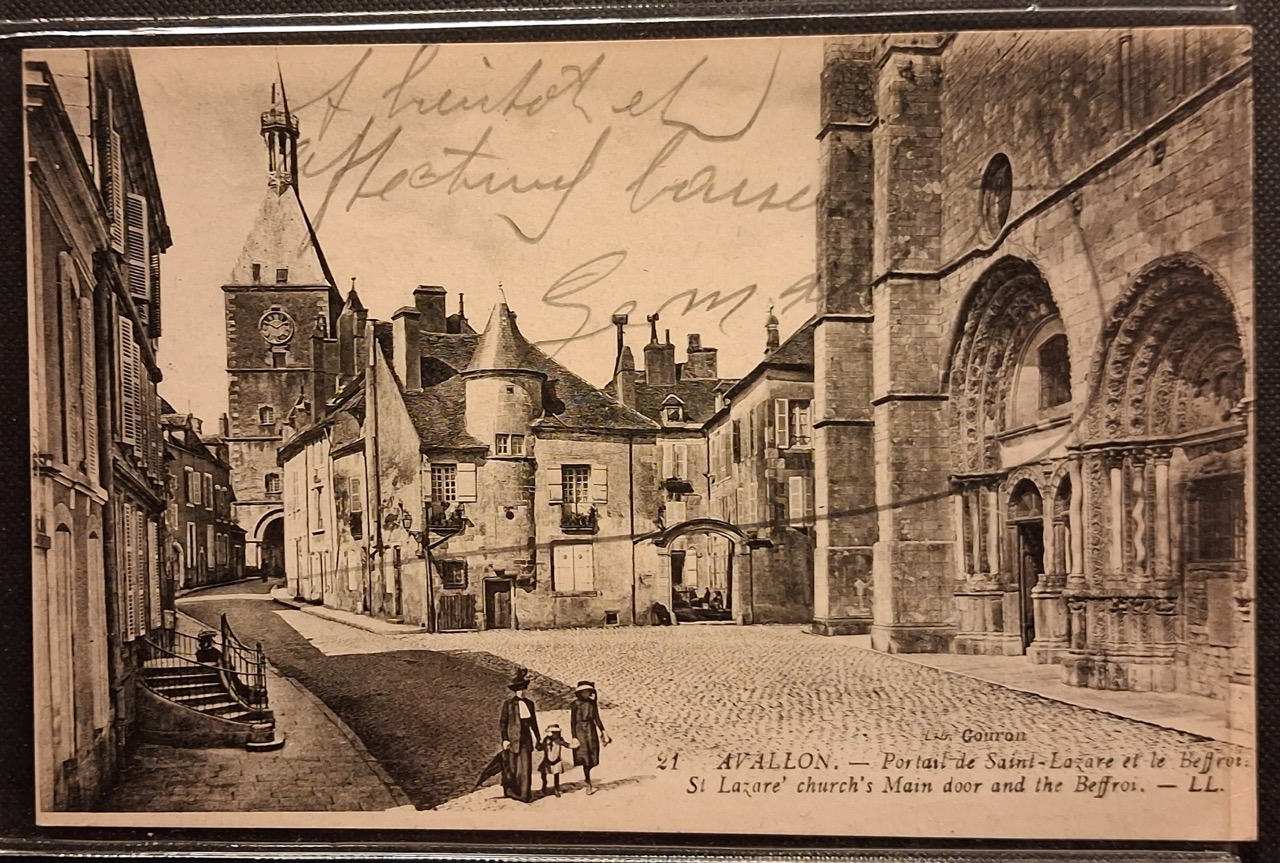 A bientôt et
affectueux baiser
Lib. Gouron
21 AVALLON. — Portail de Saint-Lazare et le Beffroi.
St Lazare' church's Main door and the Beffroi. — LL.